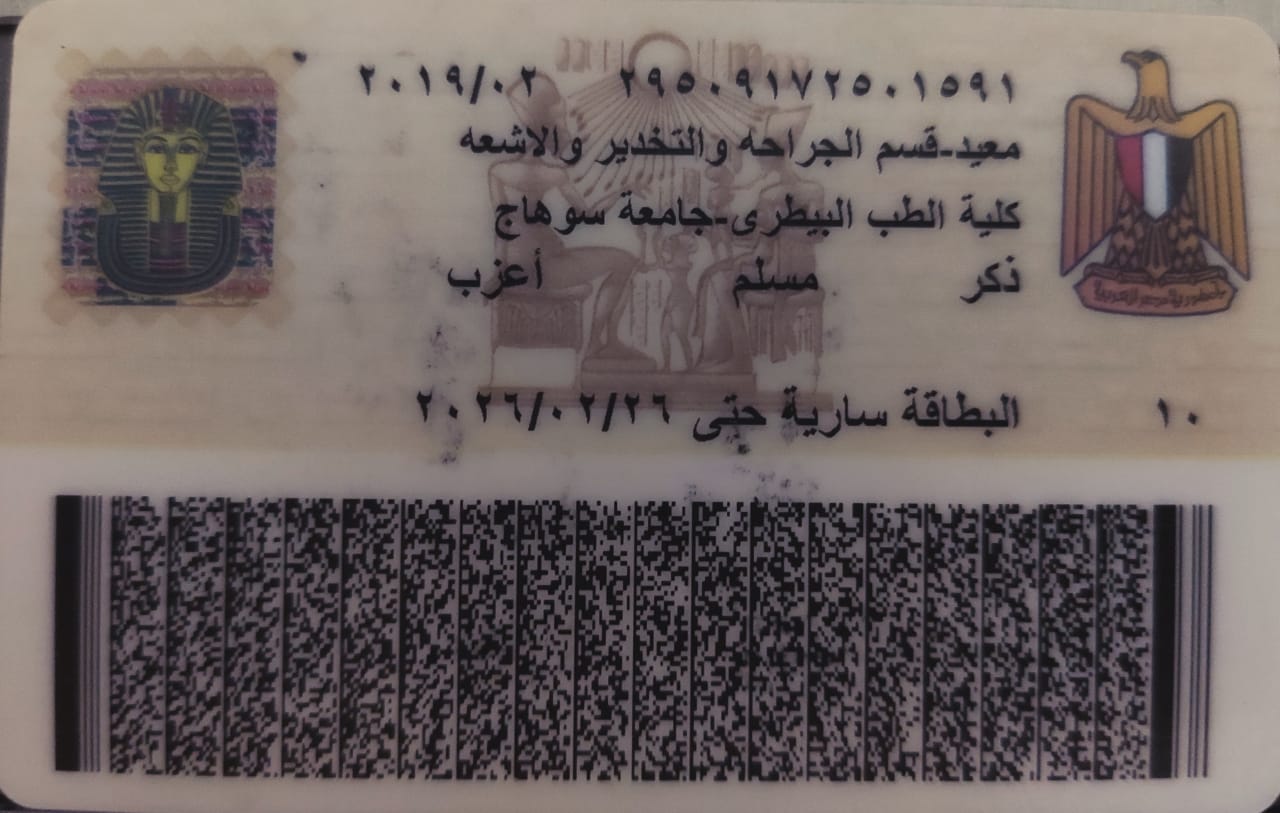 ٢٩٥٠٩١٧٢٥٠١٥٩١ ٢٠١٩/٠٢
معيد-قسم الجراحه والتخدير والاشعه
كلية الطب البيطرى-جامعة سوهاج
ذكر مسلم أعزب
البطاقة سارية حتى ٢٠٢٦/٠٢/٢٦
١٠
جمهورية مصر العربية